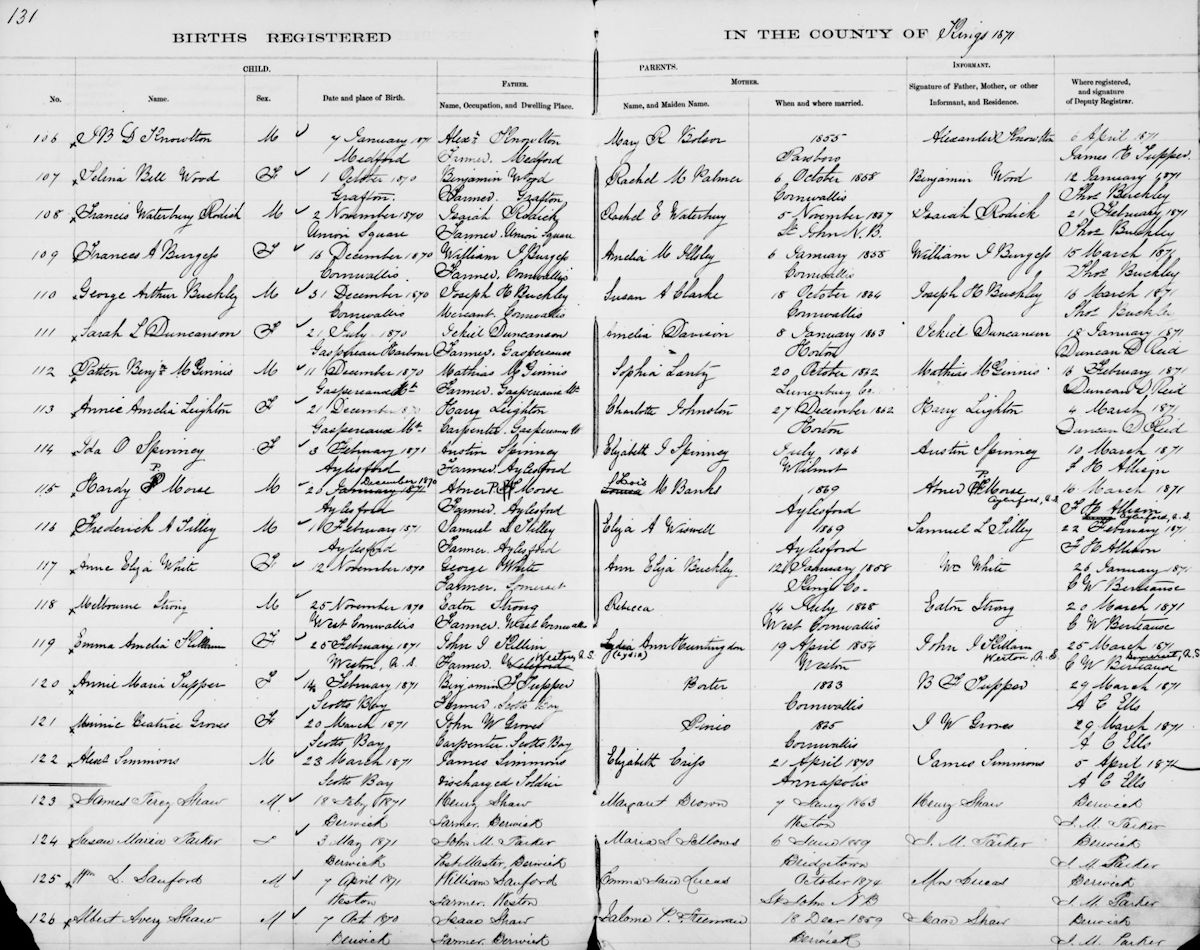 131
BIRTHS REGISTERED IN THE COUNTY OF Kings 1871
CHILD. PARENTS. INFORMANT.
FATHER. MOTHER. Signature of Father, Mother, or other Informant, and Residence. Where registered, and signature of Deputy Registrar.
No. Name. Sex. Date and place of Birth. Name, Occupation, and Dwelling Place. Name, and Maiden Name. When and where married.
106 J B D Knowlton M 7 January 1871 Alexr Knowlton Mary R Bolsor 1855 Alexander Knowlton 6 April 1871
Medford Farmer. Medford Parsboro James E Tupper.
107 Selina Bell Wood F 1 October 1870 Benjamin Wood Rachel M Palmer 6 October 1858 Benjamin Wood 12 January 1871
Grafton. Farmer. Grafton Cornwallis Thos Buckley
108 Francis Waterbury Rodick M 2 November 1870 Isaiah Rodick Rachel E Waterbury 5 November 1867 Isaiah Rodick 21 February 1871
Union Square Farmer. Union Square St John N.B. Thos Buckley
109 Frances A Burgess F 16 December 1870 William J Burgess Amelia M Illsley 6 January 1858 William J Burgess 15 March 1871
Cornwallis Farmer, Cornwallis Cornwallis Thos Buckley
110 George Arthur Buckley M 31 December 1870 Joseph H Buckley Susan A Clarke 18 October 1864 Joseph H Buckley 16 March 1871
Cornwallis Mercant. Cornwallis Cornwallis Thos Buckley
111 Sarah L Duncanson F 21 July 1870 Eekiel Duncanson Amelia Davison 8 January 1863 Eekiel Duncanson 18 January 1871
Gaspereau Harbour Farmer. Gaspereaux Horton Duncan D Reid
112 Patten Benjn McGinnis M 11 December 1870 Mathias McGinnis Sophia Lantz 20 October 1862 Mathias McGinnis 16 February 1871
Gaspereaux Mt Farmer. Gaspereaux Mt Lunenburg Co. Duncan D Reid
113 Annie Amelia Leighton F 21 December 1870 Harry Leighton Charlotte Johnston 27 December 1862 Harry Leighton 4 March 1871
Gaspereaux Mt. Carpenter. Gaspereaux Mt Horton Duncan D Reid
114 Ida O Spinney F 3 February 1871 Austin Spinney Elizabeth J Spinney July 1846 Austin Spinney 10 March 1871
Aylesford Farmer. Aylesford Wilmot F H Allison
115 Hardy P Morse M 20 December 1870 Abner P Morse Lois M Banks 1869 Abner P Morse 16 March 1871
Aylesford Farmer. Aylesford Aylesford Aylesford, N.S. F H Allison
116 Frederick A Tilley M 11 February 1871 Samuel L Tilley Eliza A Wiswell 1869 Samuel L Tilley 22 February 1871
Aylesford Farmer. Aylesford Aylesford F H Allison
117 Anne Eliza White F 12 November 1870 George White Ann Eliza Buckley 12 January 1858 Wm White 26 January 1871
Farmer. Somerset Kings Co. C W Berteaux
118 Melbourne Strong M 25 November 1870 Eaton Strong Rebecca 14 July 1868 Eaton Strong 20 March 1871
West Cornwallis Farmer. West Cornwallis West Cornwallis C W Berteaux
119 Emma Amelia Killam F 25 February 1871 John I Killam (Lydia) Ann Huntingdon 19 April 1854 John I Killam 25 March 1871
Weston, N.S. Farmer. Weston, N.S. Weston Weston, N.S. C W Berteaux
120 Annie Maria Tupper F 14 February 1871 Benjamin F Tupper Borter 1863 B F Tupper 29 March 1871
Scotts Bay Farmer. Scotts Bay Cornwallis A C Ells
121 Minnie Beatrice Groves F 20 March 1871 John W Groves Pinio 1865 J W Groves 29 March 1871
Scotts Bay Carpenter. Scotts Bay Cornwallis A C Ells
122 Alexr Simmons M 23 March 1871 James Simmons Elizabeth Crips 21 April 1870 James Simmons 5 April 1871
Scotts Bay Discharged Soldier Annapolis A C Ells
123 James Percy Shaw M 18 Feby 1871 Henry Shaw Margaret Brown 7 Jany 1863 Henry Shaw Berwick
Berwick Farmer. Berwick Weston J. M. Parker
124 Susan Maria Parker F 3 May 1871 John M. Parker Maria S Fellows 6 June 1859 J. M. Parker Berwick
Berwick Post Master, Berwick Bridgetown J. M. Parker
125 Wm L. Sanford M 7 April 1871 William Sanford Emma Jane Lucas October 1874 Mrs Lucas Berwick
Weston Farmer. Weston St John N B J. M. Parker
126 Albert Avery Shaw M 7 Oct 1870 Isaac Shaw Salome P. Freeman 18 Decr 1859 Isaac Shaw Berwick
Berwick Farmer. Berwick Berwick J. M. Parker